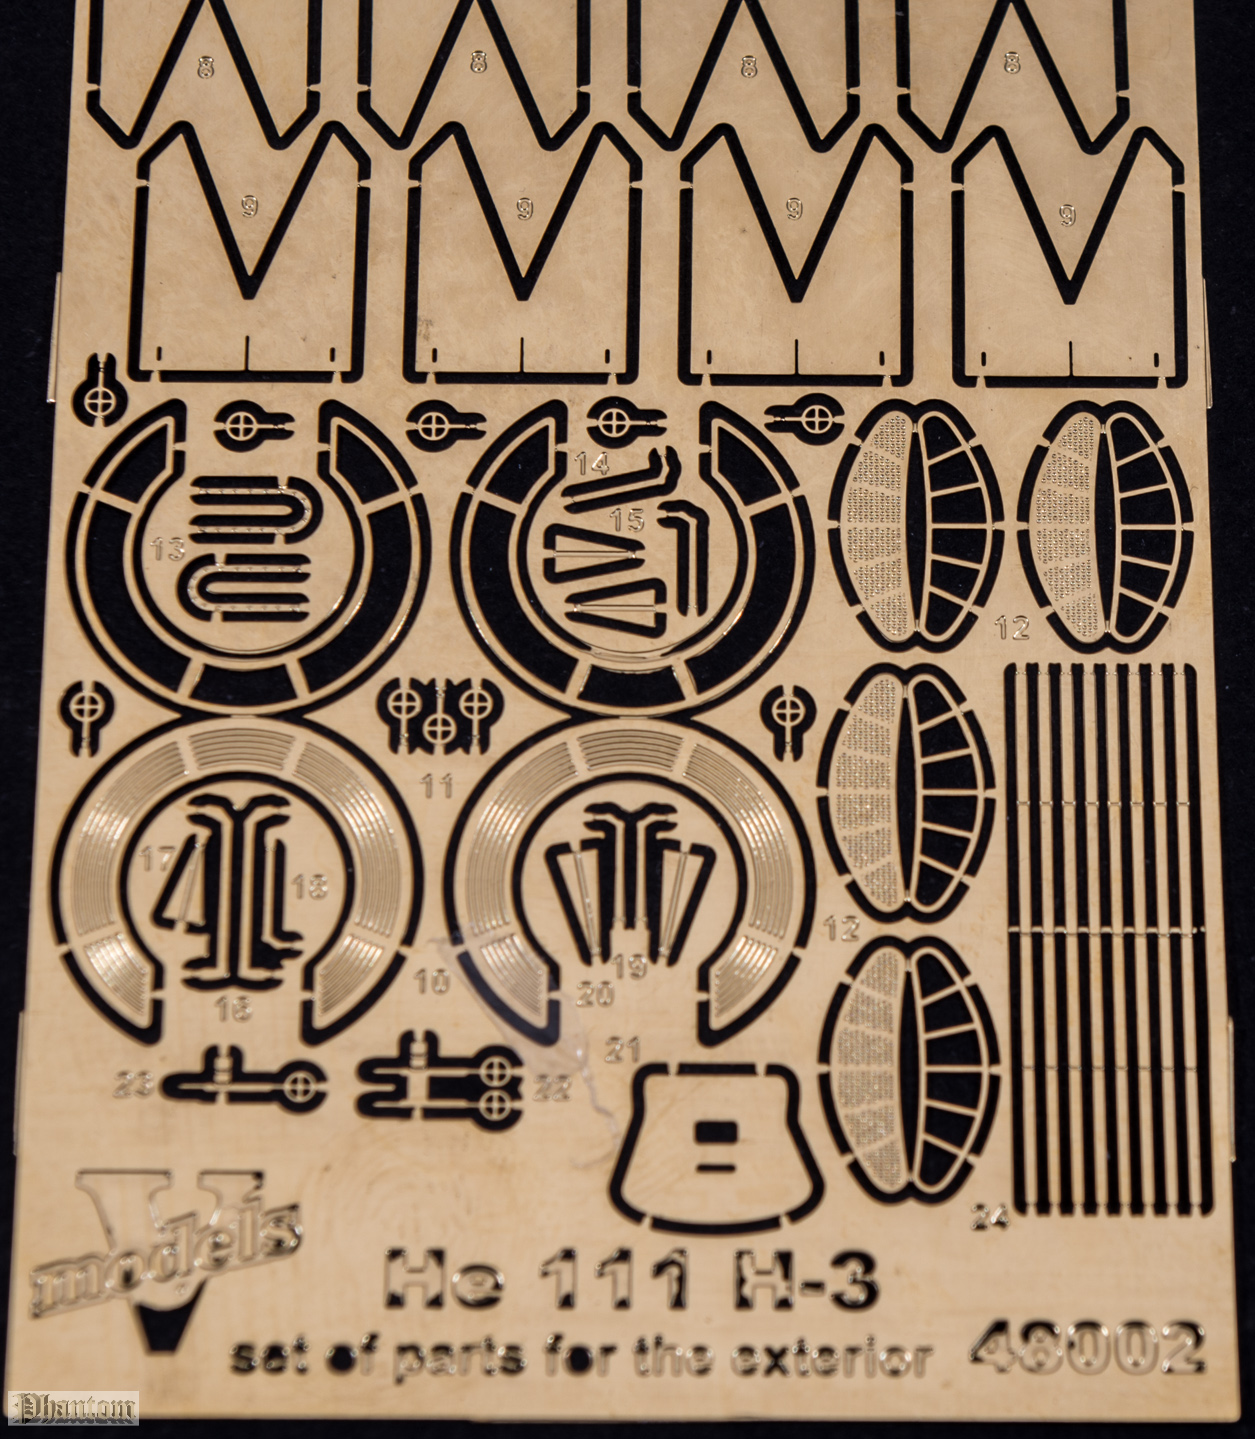 8 8 8 8
9 9 9 9
14
15
13
12
11
17
18
12
10
19
20
16
21
23
22
24
V
models
He 111 H-3
set of parts for the exterior
48002
Phantom